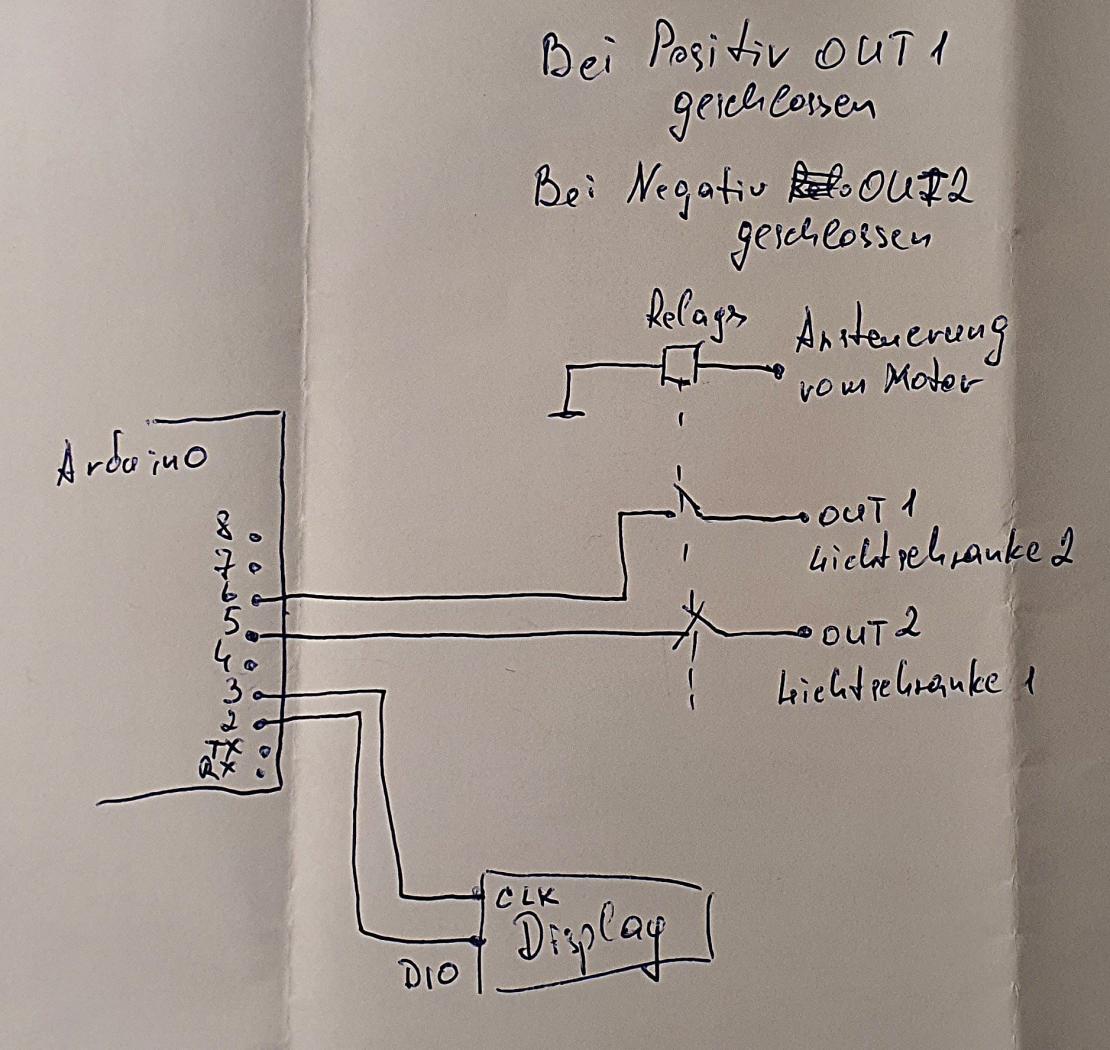 Bei Positiv OUT 1
geschlossen
Bei Negativ OUT2
geschlossen
Relays
Ansteuerung
vom Motor
Arduino
8
7
6
5
4
3
2
TX
RX
OUT 1
Lichtschranke 2
OUT 2
Lichtschranke 1
CLK
Display
DIO